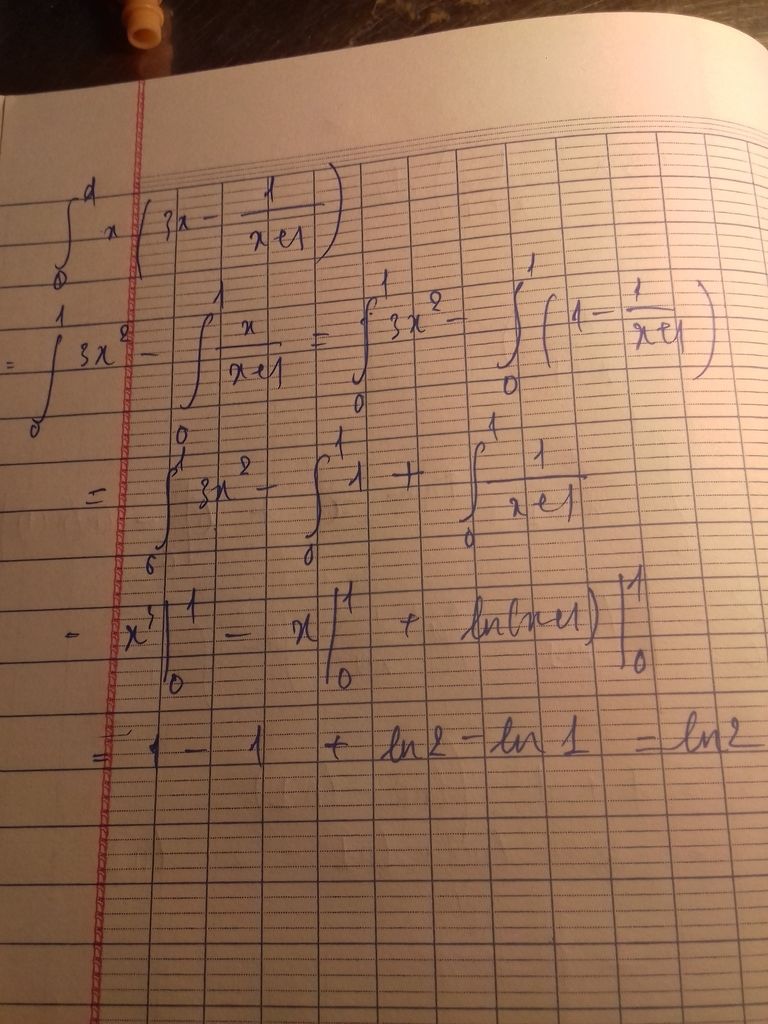 ∫₀¹ x (3x - 1/(x+1))
= ∫₀¹ 3x² - ∫₀¹ x/(x+1) = ∫₀¹ 3x² - ∫₀¹ (1 - 1/(x+1))
= ∫₀¹ 3x² - ∫₀¹ 1 + ∫₀¹ 1/(x+1)
- x³|₀¹ - x|₀¹ + ln(x+1)|₀¹
= 1 - 1 + ln2 - ln 1 = ln2